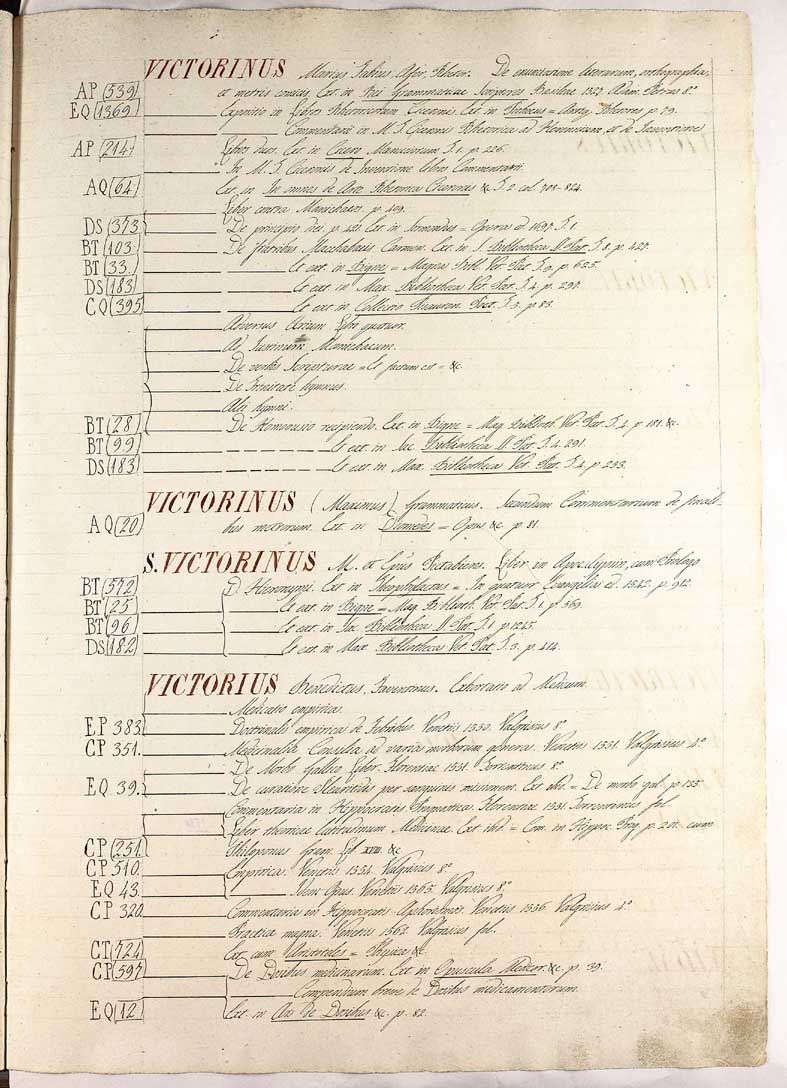 VICTORINUS Marius Fabius, Afer, Rhetor. De enunciatione literarum, orthographia,
AP (539) et metris omnibus. Ext. in Rei Grammaticae Scriptores Basileae 1527. Adam. Petrus 8°
EQ (1369) Expositio in Libros Rhetoricorum Ciceronis. Ext. in = Antiq. Rhetores p. 79.
Commentarii in M. T. Ciceronis Rhetorica ad Herennium et de Inventione
AP (214) Libros duos. Ext. in Cicero Manucciorum T. 1. p. 226.
In M. T. Ciceronis de Inventione libros Commentarii.
AQ (64) Ext. in In omnes de Arte Rhetorica Ciceronis &c T. 2. col. 708-824.
Liber contra Manichaeos. p. 409.
DS (373) De principio diei. p. 421. Ext. in Sirmondus = Opera ed. 1697. T. 1.
BT (103) De fratribus Macchabaeis Carmen. Ext. in Bibliotheca V. Pat. T. 8. p. 428.
BT (33) Le ext. in Bigne = Magna Bibl. Vet. Pat. T. 9. p. 635.
DS (183) Le ext. in Max. Bibliotheca Vet. Pat. T. 4. p. 291.
CQ (395) Le ext. in Collectio Pisauren. Poet. T. 5. p. 83.
Adversus Arium Libri quatuor.
Ad Justinum Manichaeum.
De verbis Scripturae = Et factum est = &c.
De Trinitate hymnus.
Alii hymni.
BT (28) De Homousio recipiendo. Ext. in Bigne = Mag. Biblioth. Vet. Pat. T. 4. p. 181. &c.
BT (99) Le ext. in Sac. Bibliotheca V. Pat. T. 4. 291.
DS (183) Le ext. in Max. Bibliotheca Vet. Pat. T. 4. p. 253.
VICTORINUS (Maximus) Grammaticus. Secundum Commentarium de fina
AQ (20) bus metrorum. Ext. in Diomedes = Opus &c p. 81.
S. VICTORINUS M. et Epus Pictabiens. Liber in Apocalypsin, cum Prologo
BT (572) D. Hieronymi. Ext. in Theophylactus = In quatuor Evangelia ed. 1542. p. 912.
BT (25) Le ext. in Bigne = Mag. Biblioth. Vet. Pat. T. 1. p. 569.
BT (96) Le ext. in Sac. Bibliotheca V. Pat. T. 1. p. 1245.
DS (182) Le ext. in Max. Bibliotheca Vet. Pat. T. 3. p. 414.
VICTORIUS Benedictus, Faventinus. Exhortatio ad Medicum.
Medicatio empirica.
EP 383. Doctrinalis empirica de Febribus. Venetiis 1550. Valgrisius 8°
CP 351. Medicinalia Consilia ad varia morborum genera. Venetiis 1551. Valgrisius 4°
De Morbo Gallico Liber. Florentiae 1551. Torrentinus 8°
EQ 39. De curatione Pleuritidis per sanguinis missionem. Ext. ibid. = De morbo gal. p. 135.
Commentaria in Hippocratis Prognostica. Florentiae 1551. Torrentinus fol.
Liber theoricae latitudinum Medicinae. Ext. ibid. = Com. in Hippoc. Prog. p. 201. cum
CP (251) Philoponus Gram. Ed. XVII. &c
CP 510. Empirica. Venetiis 1554. Valgrisius 8°
EQ 43. Idem Opus. Venetiis 1565. Valgrisius 8°
CP 320. Commentaria in Hippocratis Aphorismos. Venetiis 1556. Valgrisius 4°
Practica magna. Venetiis 1562. Valgrisius fol.
CT (724) Ext. cum Aristoteles = Physica &c.
CP (597) De Dosibus medicinarum. Ext. in Opuscula Medicor. &c. p. 39.
Compendium breve de Dosibus medicamentorum.
EQ (12) Ext. in Ars de Dosibus &c. p. 82.